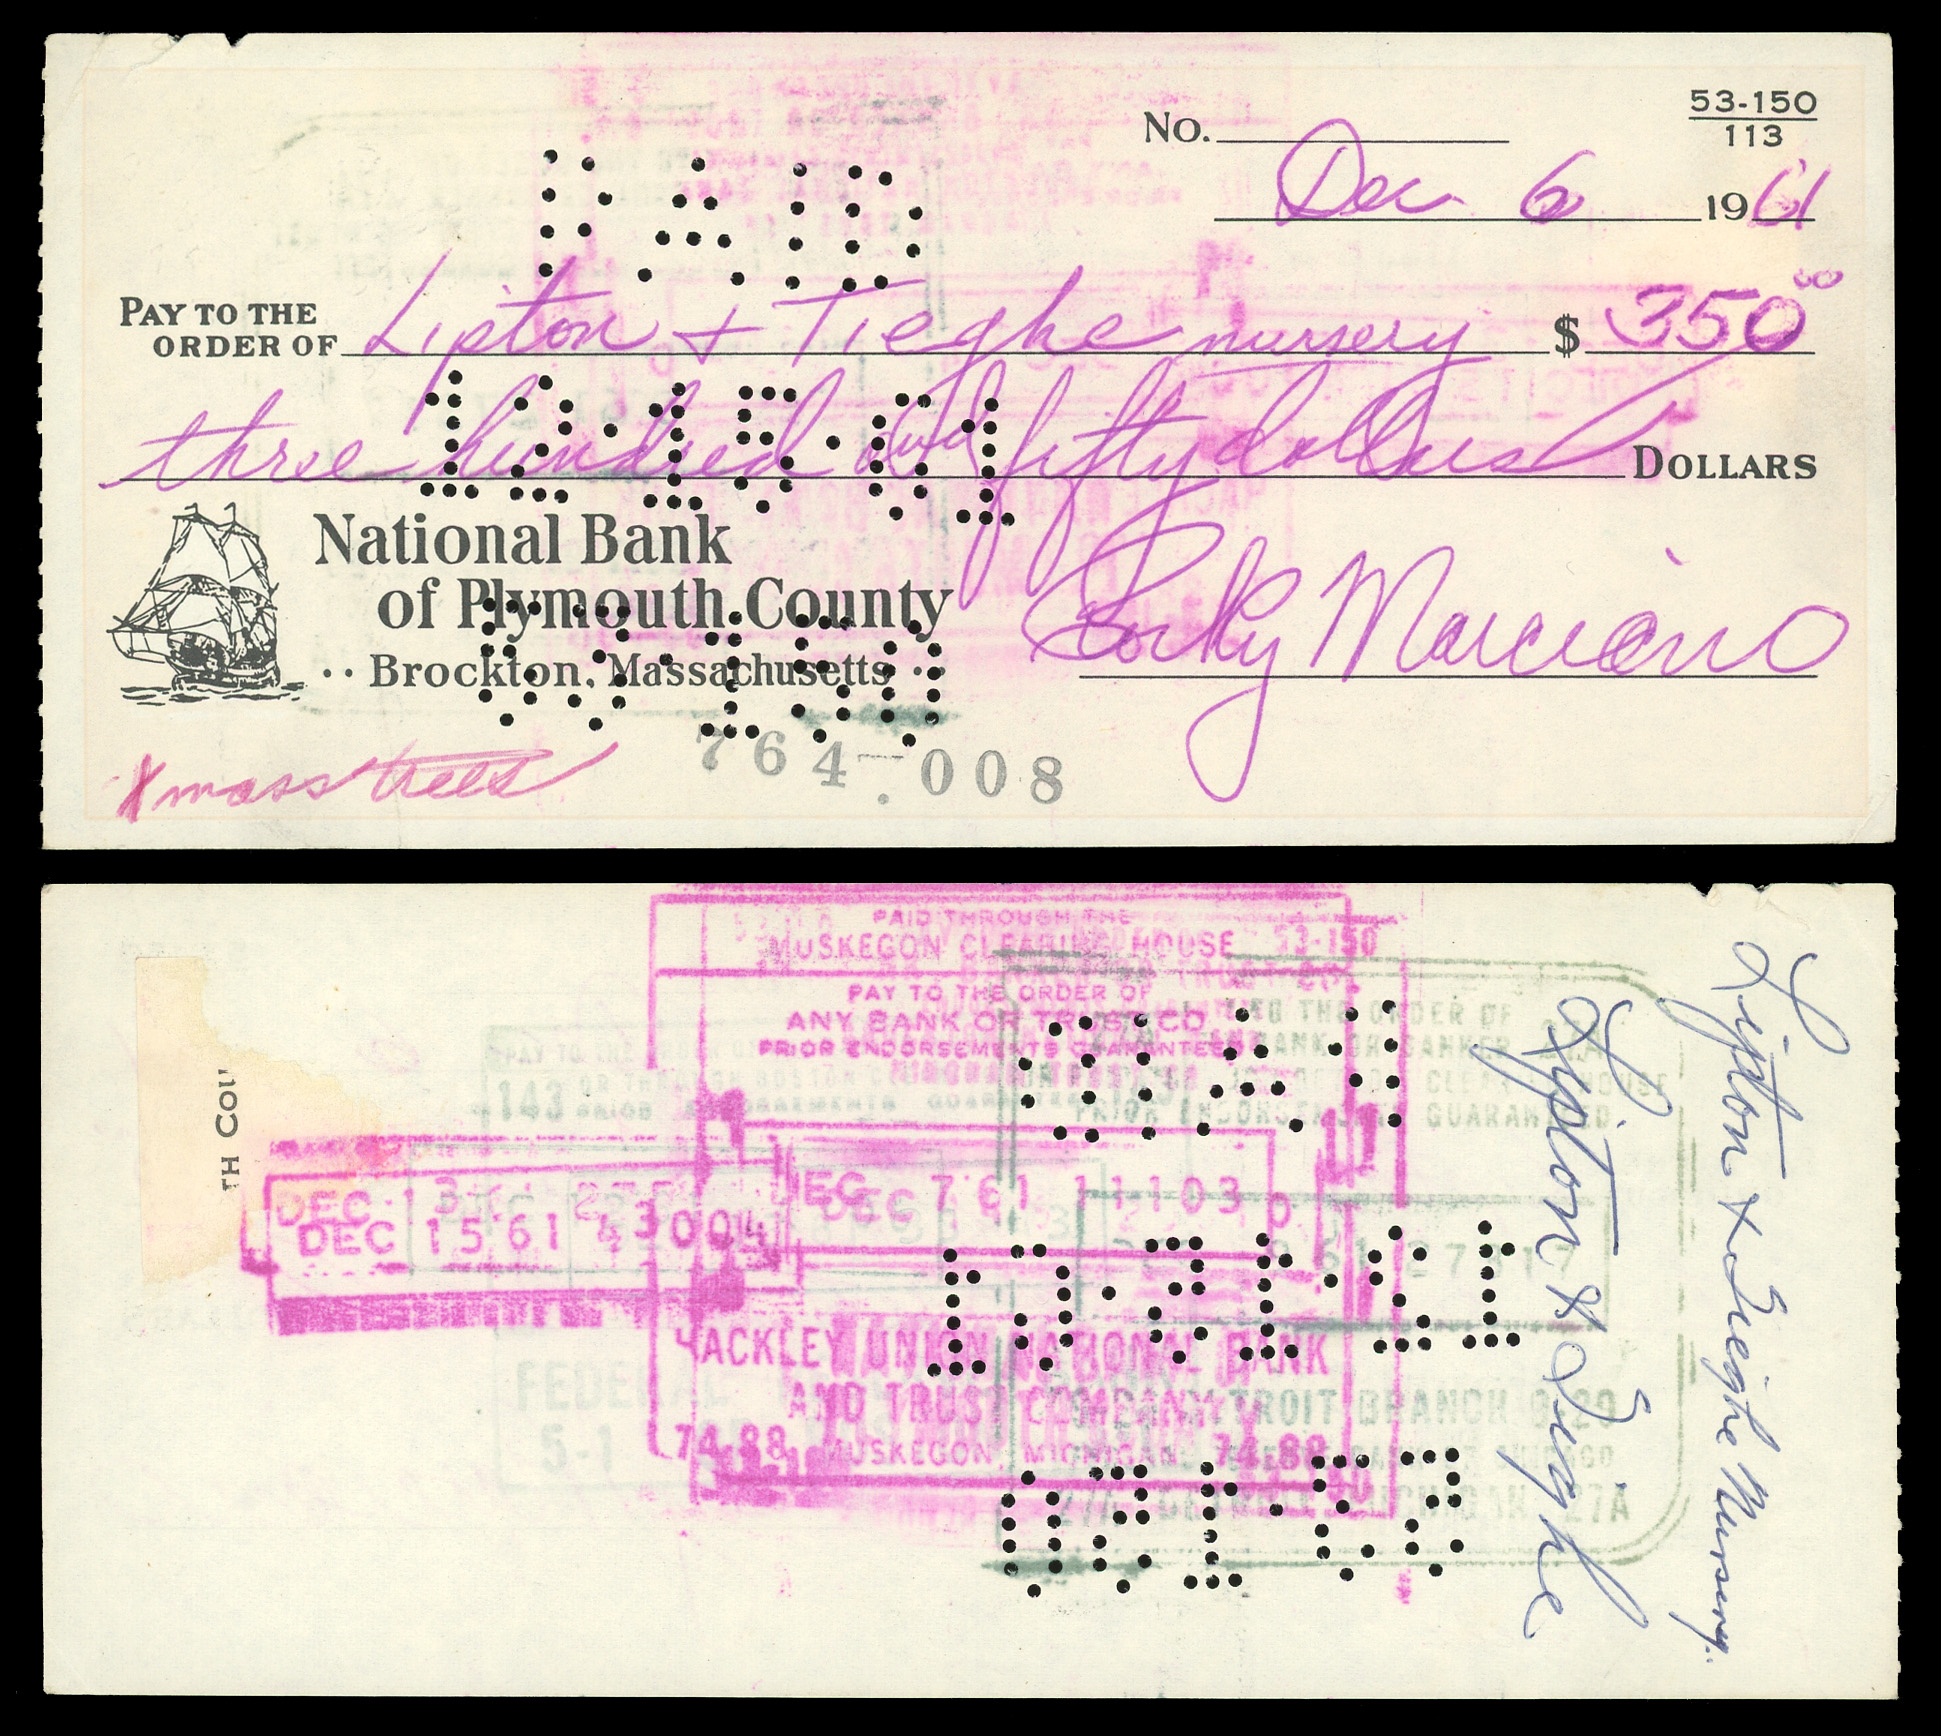 53-150
113
No.
Dec 6 1961
PAY TO THE
ORDER OF Lipton + Tieghe nursery $ 350 00
three hundred and fifty dollars DOLLARS
PAID
12·15·61
National Bank
of Plymouth County
·· Brockton, Massachusetts ··
Rocky Marciano
764-008
Xmass trees
PAID THROUGH THE
MUSKEGON CLEARING HOUSE 53-150
PAY TO THE ORDER OF
ANY BANK OR TRUST CO
PRIOR ENDORSEMENTS GUARANTEED
TH COU
DEC 7 61 11103
DEC 13
DEC 15 61 43004
HACKLEY UNION NATIONAL BANK
AND TRUST COMPANY
74-88 MUSKEGON, MICHIGAN 74-88
PAY TO THE ORDER OF
PRIOR ENDORSEMENTS GUARANTEED
DETROIT BRANCH 9-29
DETROIT, MICHIGAN 27A
FEDERAL
5-1
Lipton + Tieghe Nursery.
Lipton & Tieghe